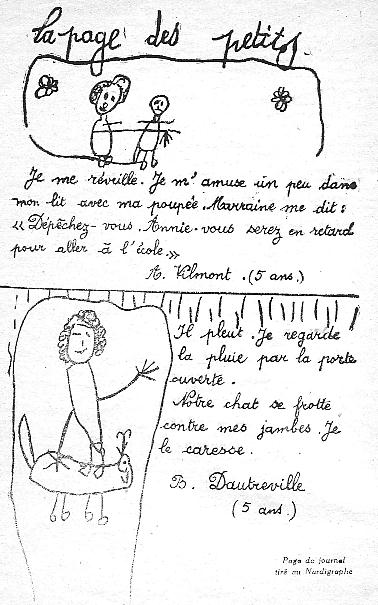 la page des petits.
Je me réveille. Je m'amuse un peu dans
mon lit avec ma poupée. Marraine me dit :
« Dépêchez-vous. Annie. vous serez en retard
pour aller à l'école. »
A. Vilmont. (5 ans.)
Il pleut. Je regarde
la pluie par la porte
ouverte.
Notre chat se frotte
contre mes jambes. Je
le caresse.
B. Dautreville
(5 ans.)
Page du journal
tiré au Nardigraphe